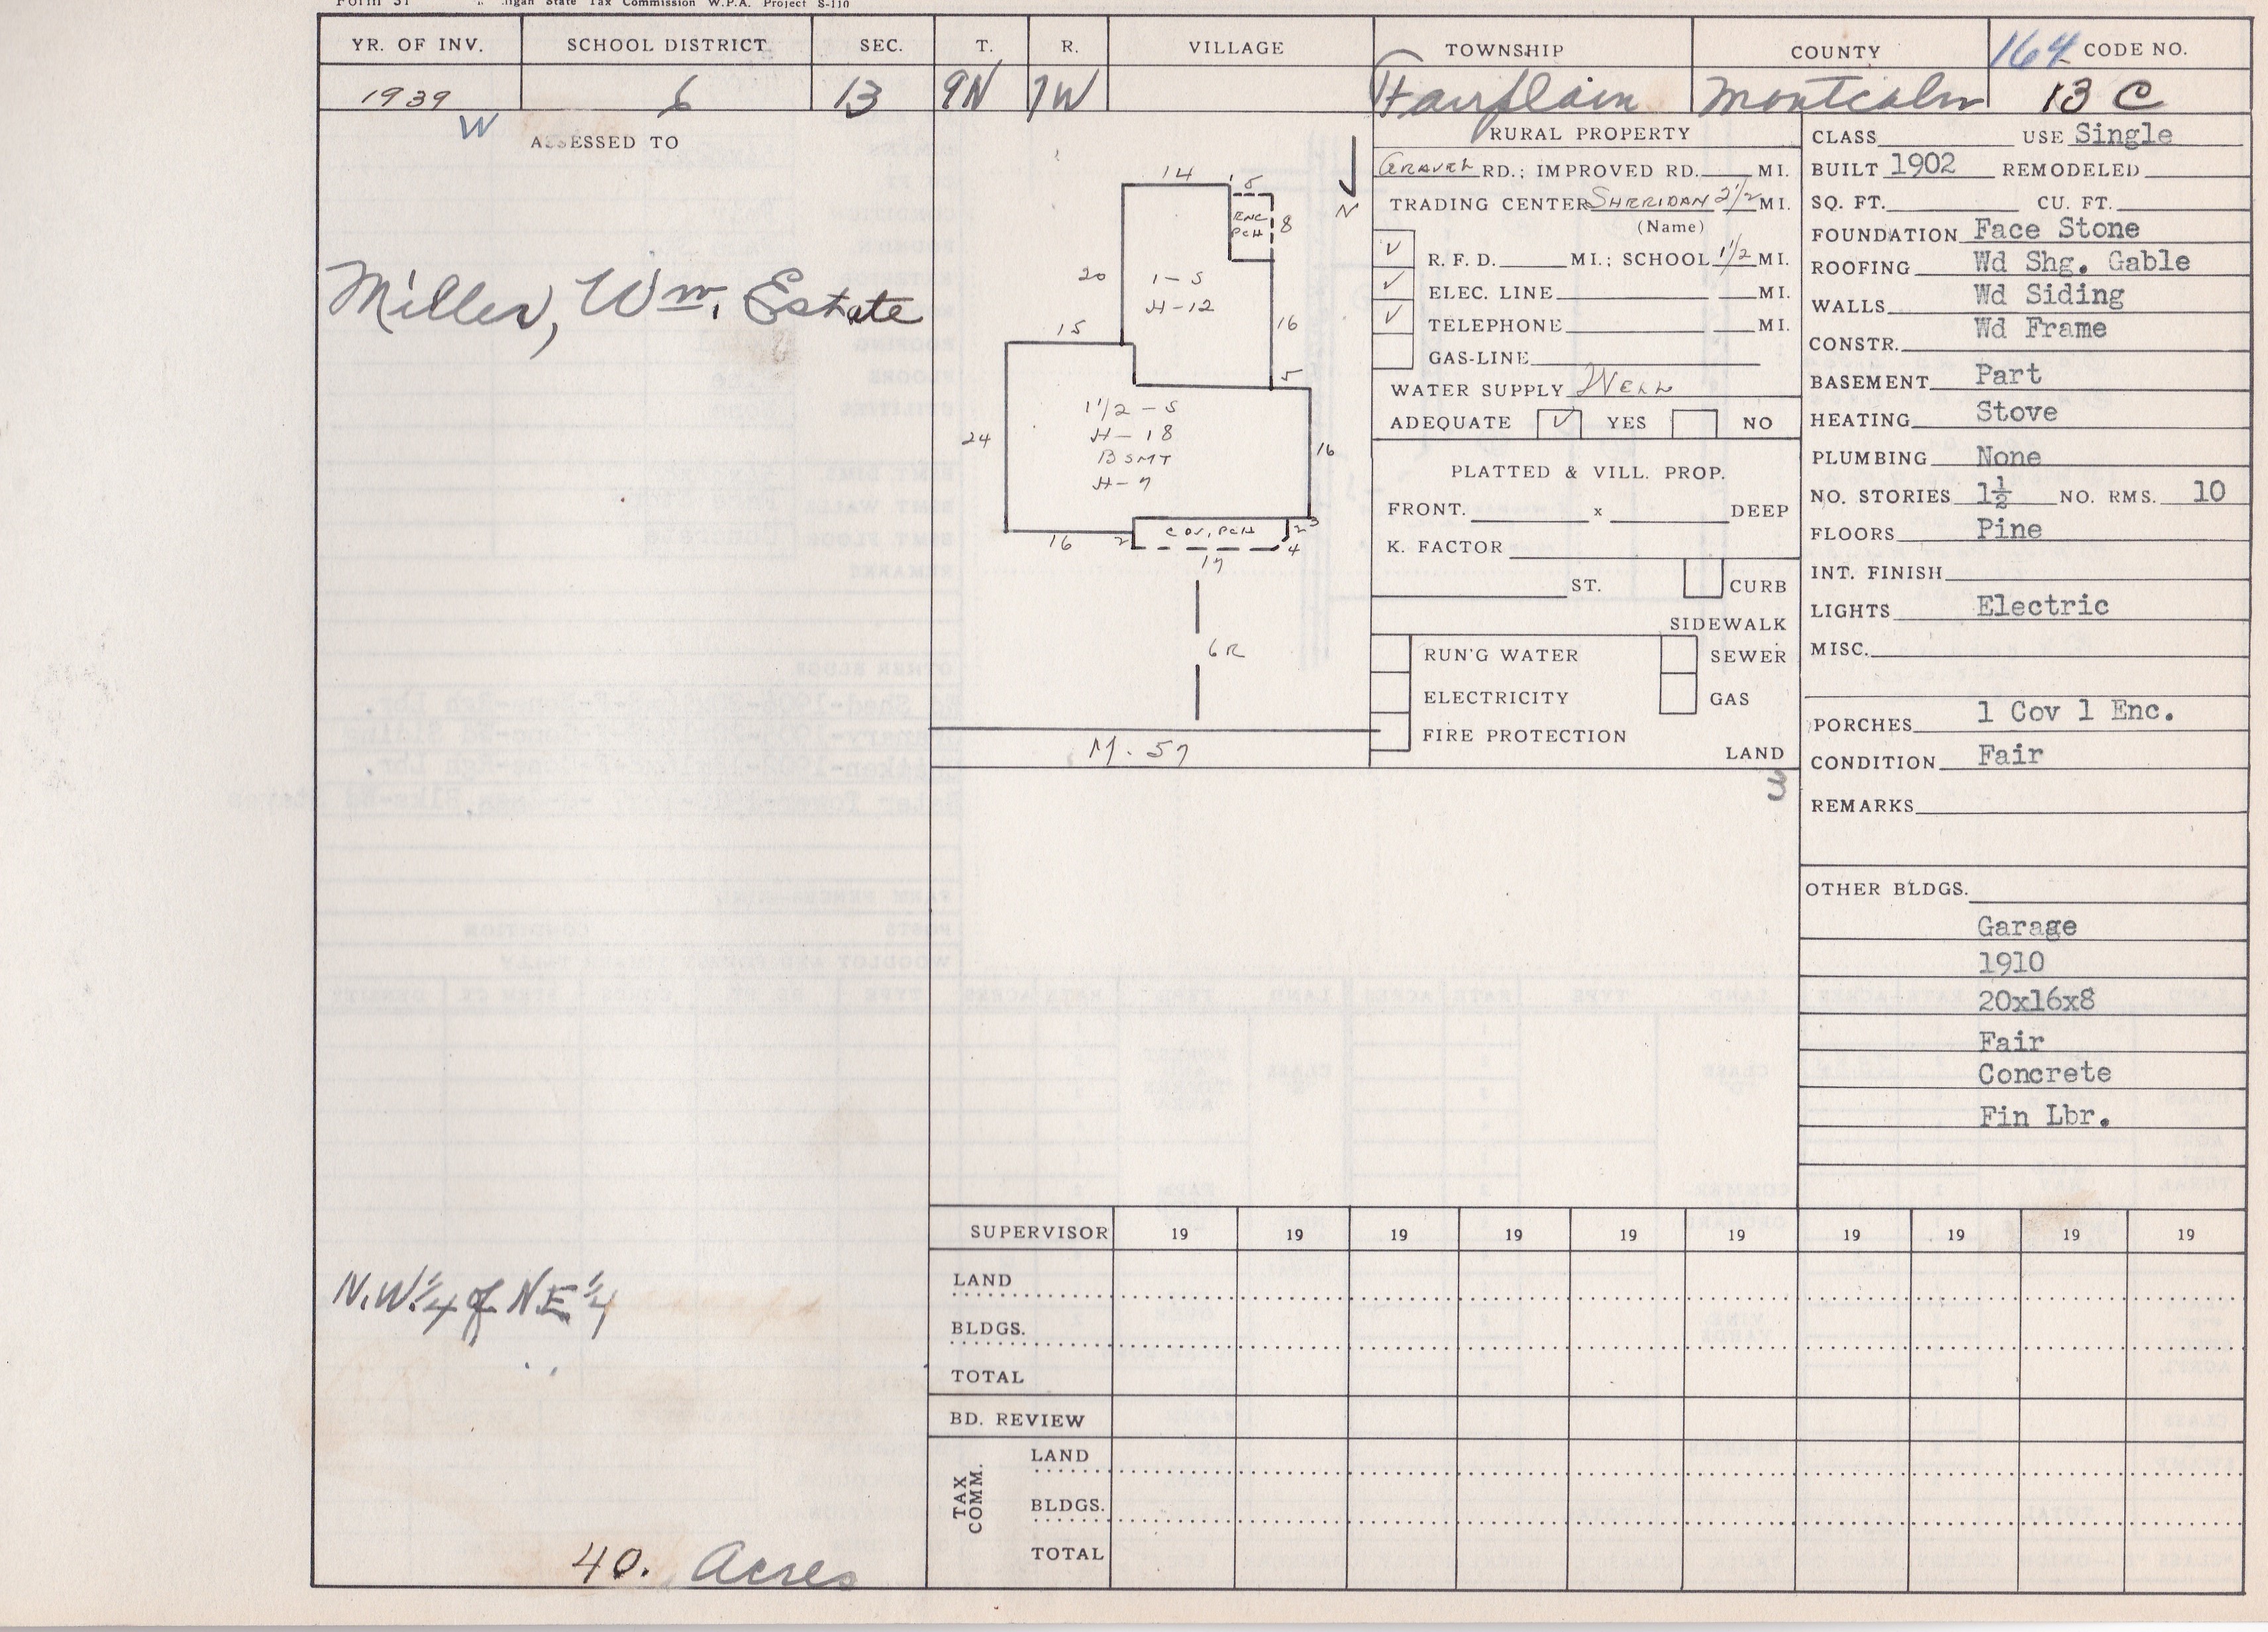 Form 31 igan State Tax Commission W.P.A. Project S-110
YR. OF INV. SCHOOL DISTRICT SEC. T. R. VILLAGE TOWNSHIP COUNTY 164 CODE NO.
1939 6 13 9N 7W Fairplain Montcalm 13 C
W
ASSESSED TO
Miller, Wm. Estate
N.W.1/4 of N.E 1/4
40. Acres
N
14
5
ENC
PCH
8
20
1-S
H-12
15
16
5
1 1/2 - S
H - 18
BSMT
H - 7
24
16
COV. PCH
16
2
2
3
4
17
6R
M. 57
RURAL PROPERTY
GRAVEL RD.; IMPROVED RD. MI.
TRADING CENTER SHERIDAN 2 1/2 MI.
(Name)
✓ R. F. D. MI.; SCHOOL 1 1/2 MI.
✓ ELEC. LINE MI.
✓ TELEPHONE MI.
GAS-LINE
WATER SUPPLY WELL
ADEQUATE ✓ YES NO
PLATTED & VILL. PROP.
FRONT. x DEEP
K. FACTOR
ST. CURB
SIDEWALK
RUN'G WATER SEWER
ELECTRICITY GAS
FIRE PROTECTION
LAND
3
CLASS USE Single
BUILT 1902 REMODELED
SQ. FT. CU. FT.
FOUNDATION Face Stone
ROOFING Wd Shg. Gable
WALLS Wd Siding
CONSTR. Wd Frame
BASEMENT Part
HEATING Stove
PLUMBING None
NO. STORIES 1½ NO. RMS. 10
FLOORS Pine
INT. FINISH
LIGHTS Electric
MISC.
PORCHES 1 Cov 1 Enc.
CONDITION Fair
REMARKS
OTHER BLDGS.
Garage
1910
20x16x8
Fair
Concrete
Fin Lbr.
SUPERVISOR 19 19 19 19 19 19 19 19 19 19
LAND
BLDGS.
TOTAL
BD. REVIEW
TAX COMM.
LAND
BLDGS.
TOTAL